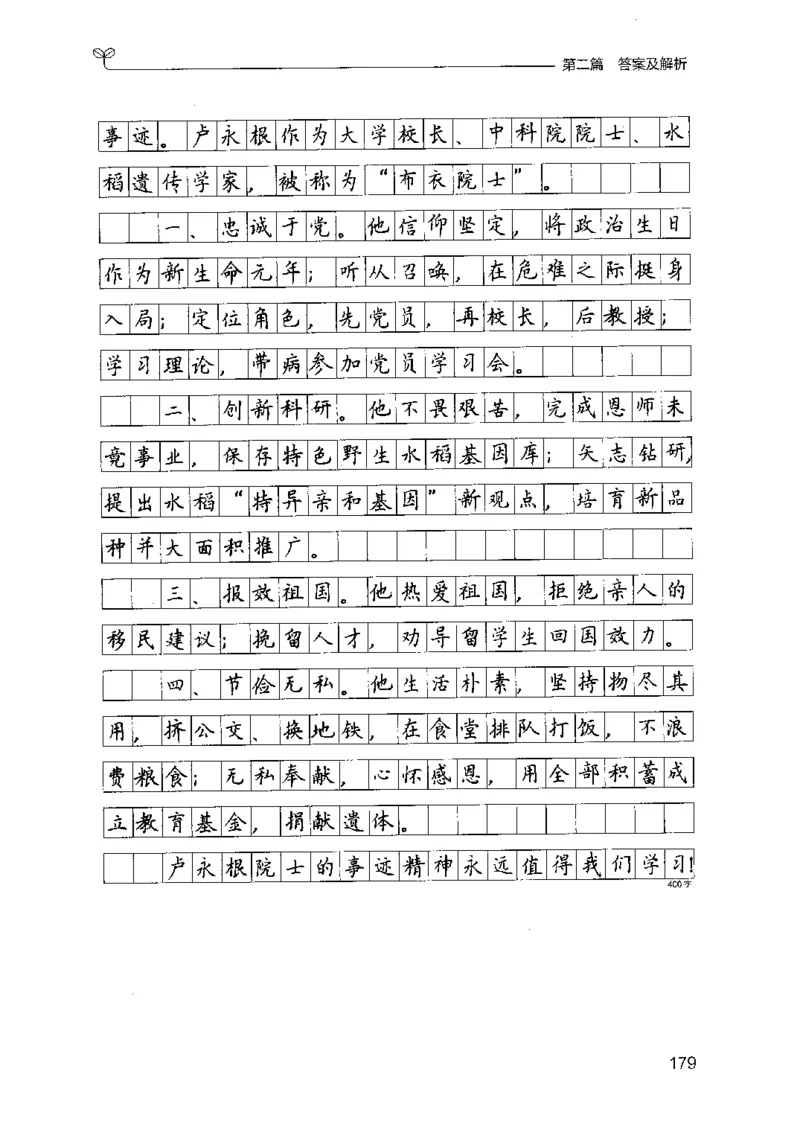 第二篇 答案及解析
事迹。卢永根作为大学校长、中科院院士、水
稻遗传学家，被称为“布衣院士”。
一、忠诚于党。他信仰坚定，将政治生日
作为新生命元年；听从召唤，在危难之际挺身
入局；定位角色，先党员，再校长，后教授；
学习理论，带病参加党员学习会。
二、创新科研。他不畏艰苦，完成恩师未
竟事业，保存特色野生水稻基因库；矢志钻研，
提出水稻“特异亲和基因”新观点，培育新品
种并大面积推广。
三、报效祖国。他热爱祖国，拒绝亲人的
移民建议；挽留人才，劝导留学生回国效力。
四、节俭无私。他生活朴素，坚持物尽其
用，挤公交、换地铁，在食堂排队打饭，不浪
费粮食；无私奉献，心怀感恩，用全部积蓄成
立教育基金，捐献遗体。
卢永根院士的事迹精神永远值得我们学习！
400字
179